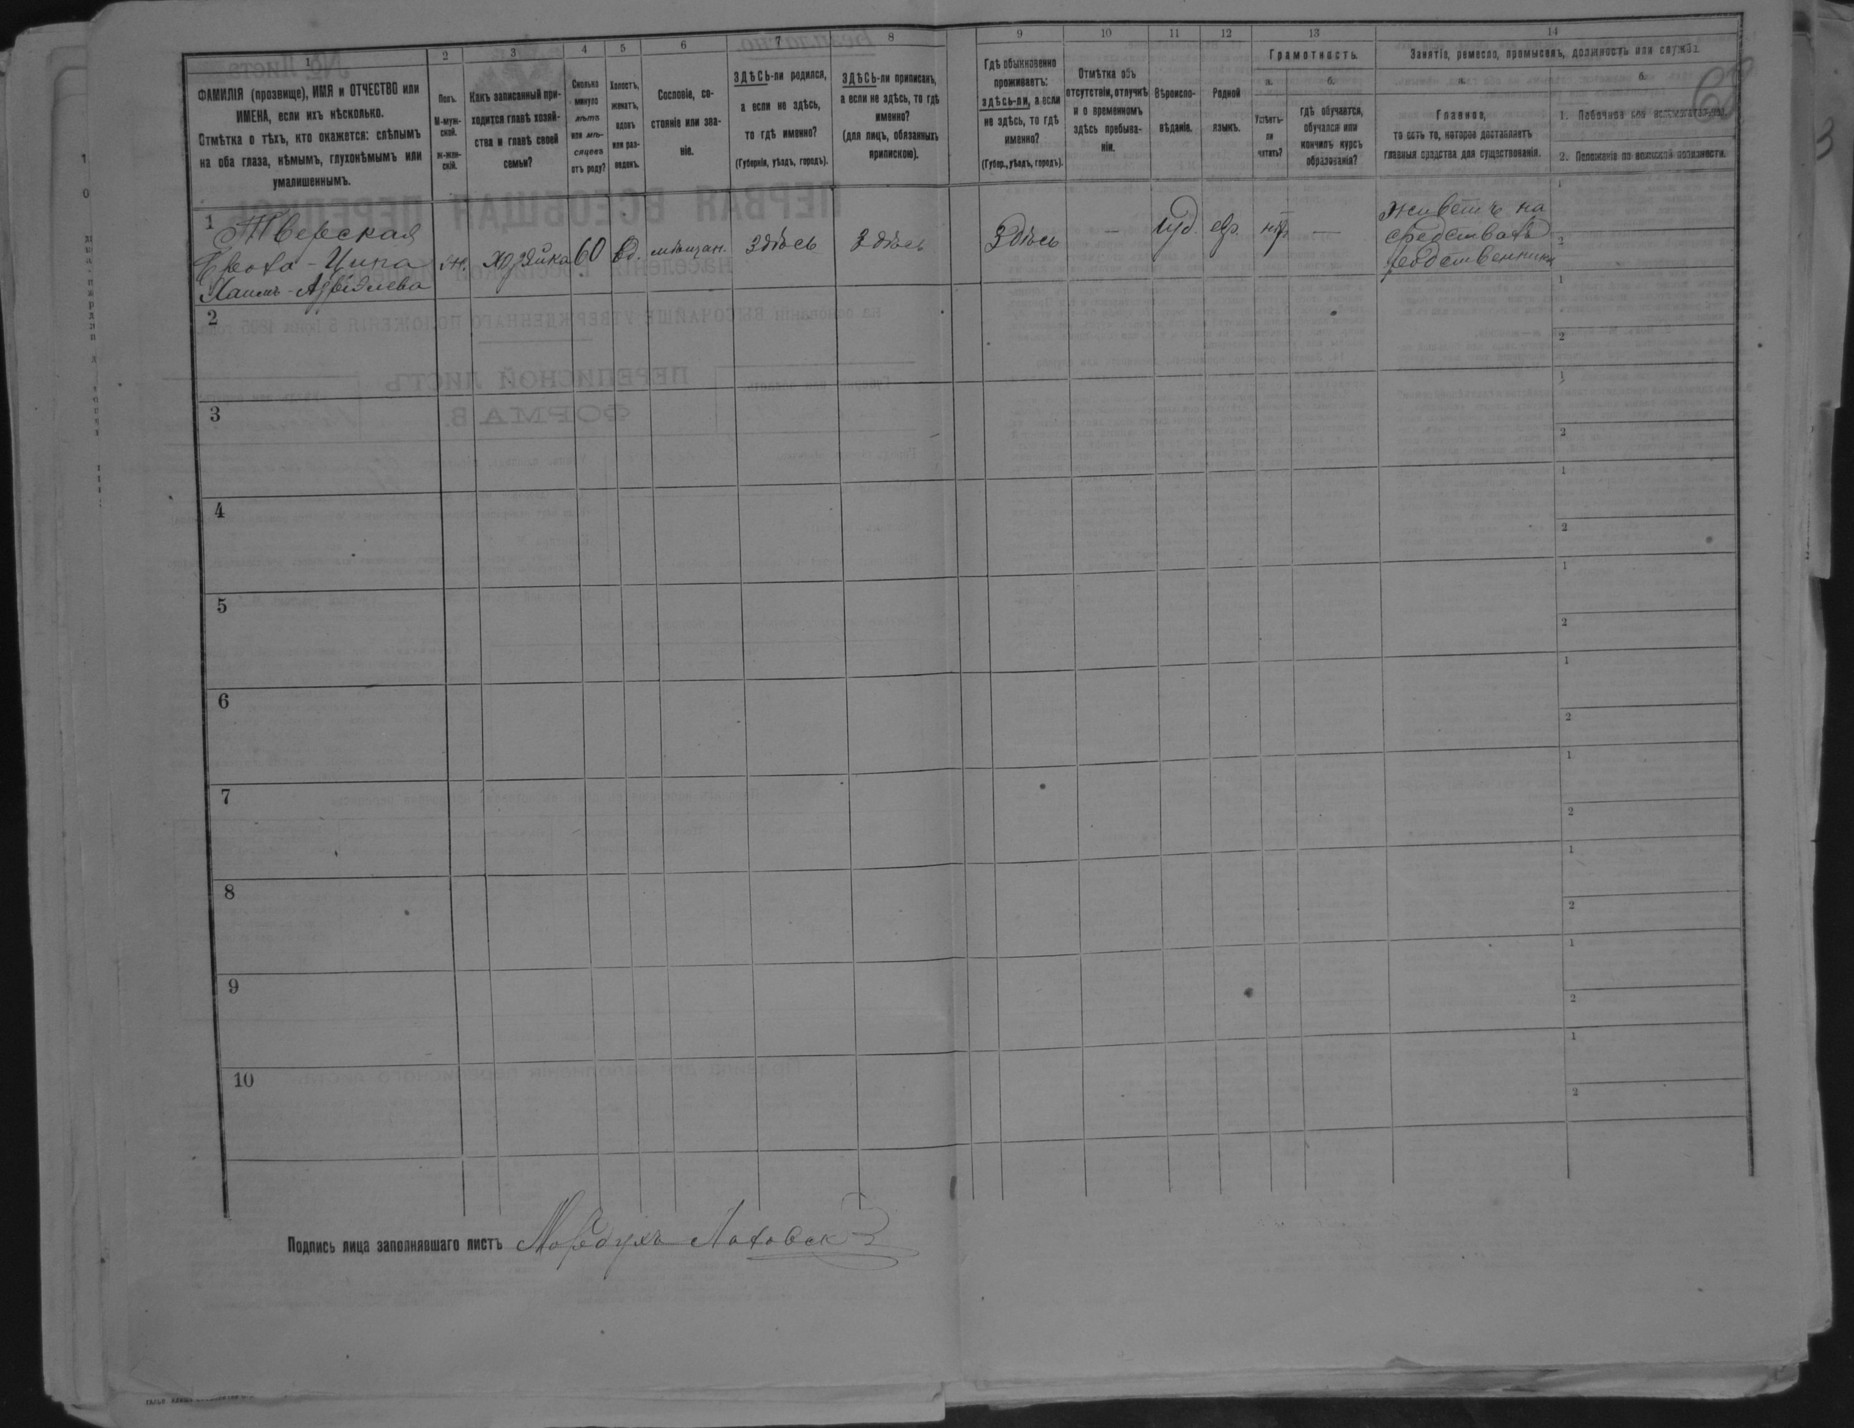 1 2 3 4 5 6 7 8 9 10 11 12 13 14
ФАМИЛІЯ (прозвище), ИМЯ и ОТЧЕСТВО или
ИМЕНА, если ихъ нѣсколько.
Отмѣтка о тѣхъ, кто окажется: слѣпымъ
на оба глаза, нѣмымъ, глухонѣмымъ или
умалишеннымъ.
Полъ.
М-муж-
ской.
ж-жен-
скій.
Какъ записанный при-
ходится главѣ хозяй-
ства и главѣ своей
семьи?
Сколько
минуло
лѣтъ
или мѣ-
сяцевъ
отъ роду?
Холостъ,
женатъ,
вдовъ
или раз-
веденъ.
Сословіе, со-
стояніе или зва-
ніе.
ЗДѢСЬ-ли родился,
а если не здѣсь,
то гдѣ именно?
(Губернія, уѣздъ, городъ).
ЗДѢСЬ-ли приписанъ,
а если не здѣсь, то гдѣ
именно?
(для лицъ, обязанныхъ
припискою).
Гдѣ обыкновенно
проживаетъ:
здѣсь-ли, а если
не здѣсь, то гдѣ
именно?
(Губер., уѣздъ, городъ).
Отмѣтка объ
отсутствіи, отлучкѣ
и о временномъ
здѣсь пребыва-
ніи.
Вѣроиспо-
вѣданіе.
Родной
языкъ.
Грамотность.
а.
Умѣетъ-
ли
читать?
б.
гдѣ обучается,
обучался или
кончилъ курсъ
образованія?
Занятіе, ремесло, промыселъ, должность или служба.
а.
Главное,
то есть то, которое доставляетъ
главныя средства для существованія.
б.
1. Побочное или вспомогательное.
2. Положеніе по воинской повинности.
1
Тверская
Ципа
ж.
хозяйка
60
вд.
мѣщан.
Здѣсь
Здѣсь
Здѣсь
—
іуд.
евр.
нѣт
—
живетъ на
средствахъ
родственника
1
2
2
1
2
3
1
2
4
1
2
5
1
2
6
1
2
7
1
2
8
1
2
9
1
2
10
1
2
Подпись лица заполнявшаго листъ Мордухъ